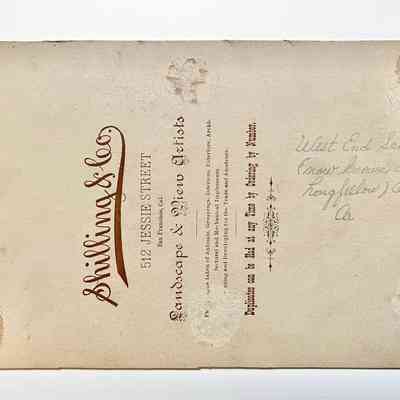 Shilling & Co.
512 JESSIE STREET
San Francisco, Cal.
Landscape & View Artists
taken of Animals, Groupings, Interiors, Exteriors, Archi-
tectural and Mechanical Implements
and Developing for the Trade and Amateurs.
Duplicates can be Had at any Time by Ordering by Number.
West End
(now
Longfellow)